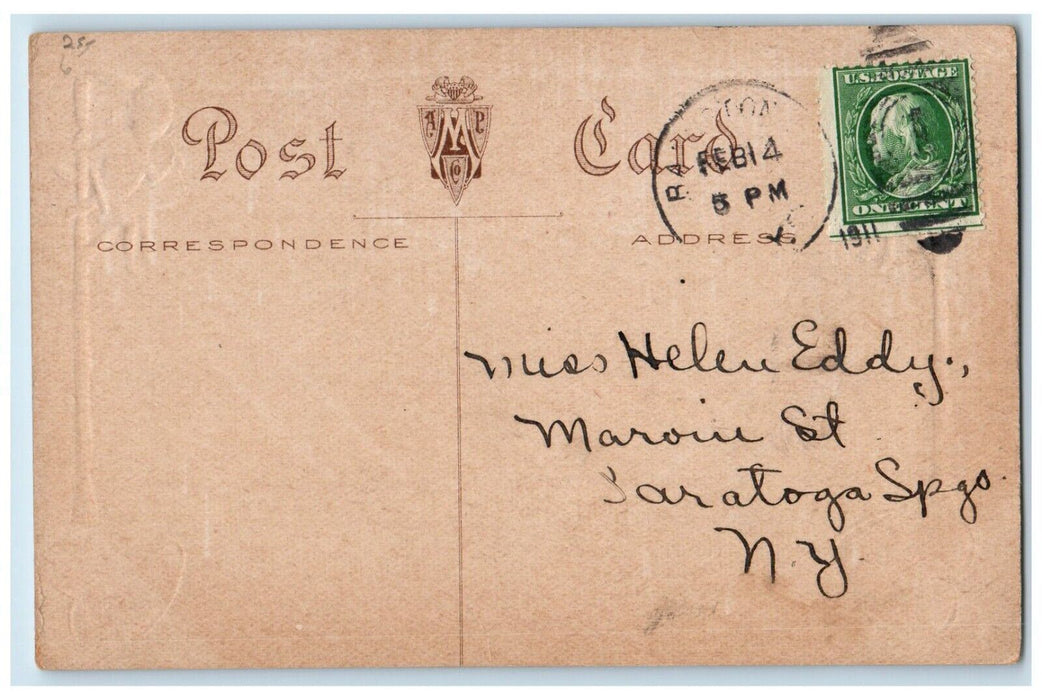 25-
6
Post Card
A M P
Co
CORRESPONDENCE
ADDRESS
FEB 14
5 PM
1911
U.S. POSTAGE
ONE CENT
Miss Helen Eddy.,
Marvin St
Saratoga Spgs.
N.Y.